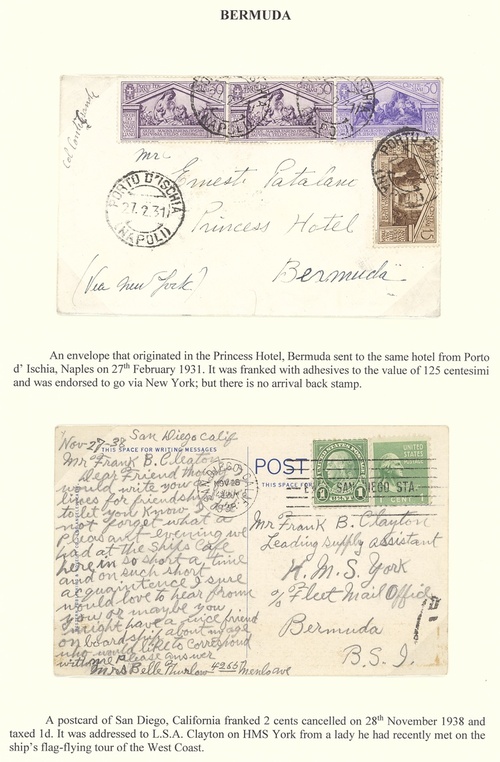 BERMUDA
30
30
50
PORTO D'ISCHIA
27.2.31
(NAPOLI)
15
Mr.
Ernest Catalano
Princess Hotel
Bermuda
(Via New York)
An envelope that originated in the Princess Hotel, Bermuda sent to the same hotel from Porto
d' Ischia, Naples on 27th February 1931. It was franked with adhesives to the value of 125 centesimi
and was endorsed to go via New York; but there is no arrival back stamp.
Nov-27-38 San Diego Calif
THIS SPACE FOR WRITING MESSAGES
Mr Frank B. Clayton
Dear Friend thought
would write you a
lines for friendship
to let you Know I
not forget what a
Pleasant evening we
had at the Ships Cafe
here in so short a time
and on such short
acquaintance I sure
would love to hear from
you or maybe you
might have a nice friend
on board ship about my age
who would like to correspond
with me please answer
Mrs Belle Thurlow 4266 Menlo ave
POST
THIS SPACE FOR
NOV 28
1 CENT 1
UNITED STATES
1 CENT 1
SAN DIEGO STA.
Mr Frank B. Clayton
Leading supply assistant
H. M. S. York
% Fleet Mail Office
Bermuda
B. S. I.
A postcard of San Diego, California franked 2 cents cancelled on 28th November 1938 and
taxed 1d. It was addressed to L.S.A. Clayton on HMS York from a lady he had recently met on the
ship's flag-flying tour of the West Coast.